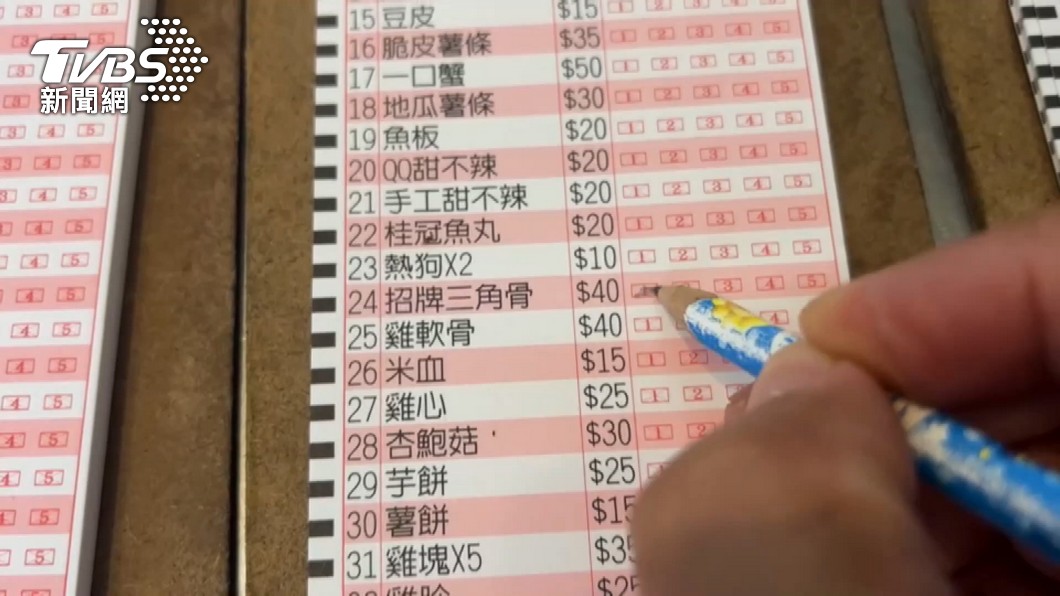 TVBS
新聞網
15 豆皮 $15 1 2 3 4 5
16 脆皮薯條 $35 1 2 3 4 5
17 一口蟹 $50 1 2 3 4 5
18 地瓜薯條 $30 1 2 3 4 5
19 魚板 $20 1 2 3 4 5
20 QQ甜不辣 $20 1 2 3 4 5
21 手工甜不辣 $20 1 2 3 4 5
22 桂冠魚丸 $20 1 2 3 4 5
23 熱狗X2 $10 1 2 3 4 5
24 招牌三角骨 $40 3 4 5
25 雞軟骨 $40 1 4
26 米血 $15 1 2
27 雞心 $25 1 2
28 杏鮑菇 $30 1 2
29 芋餅 $25
30 薯餅 $15
31 雞塊X5 $35